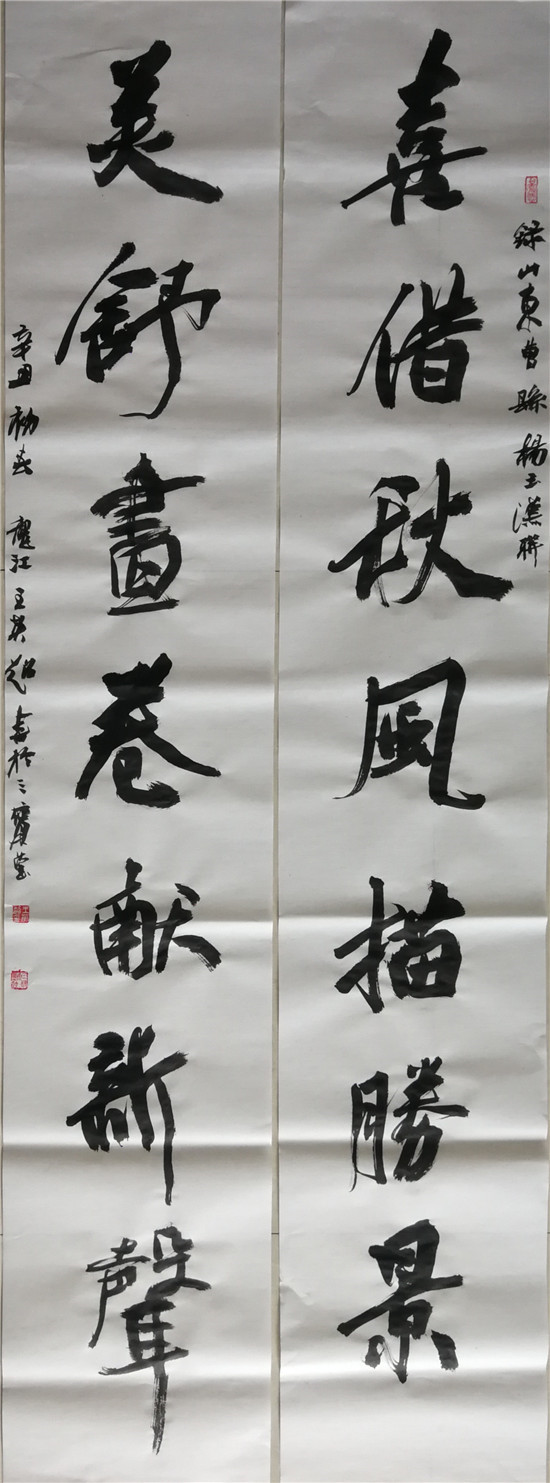 錄山東曹縣楊玉漢聯
喜借秋風描勝景
美舒畫卷獻新聲
辛丑初春 耀江王英超書於三寶堂